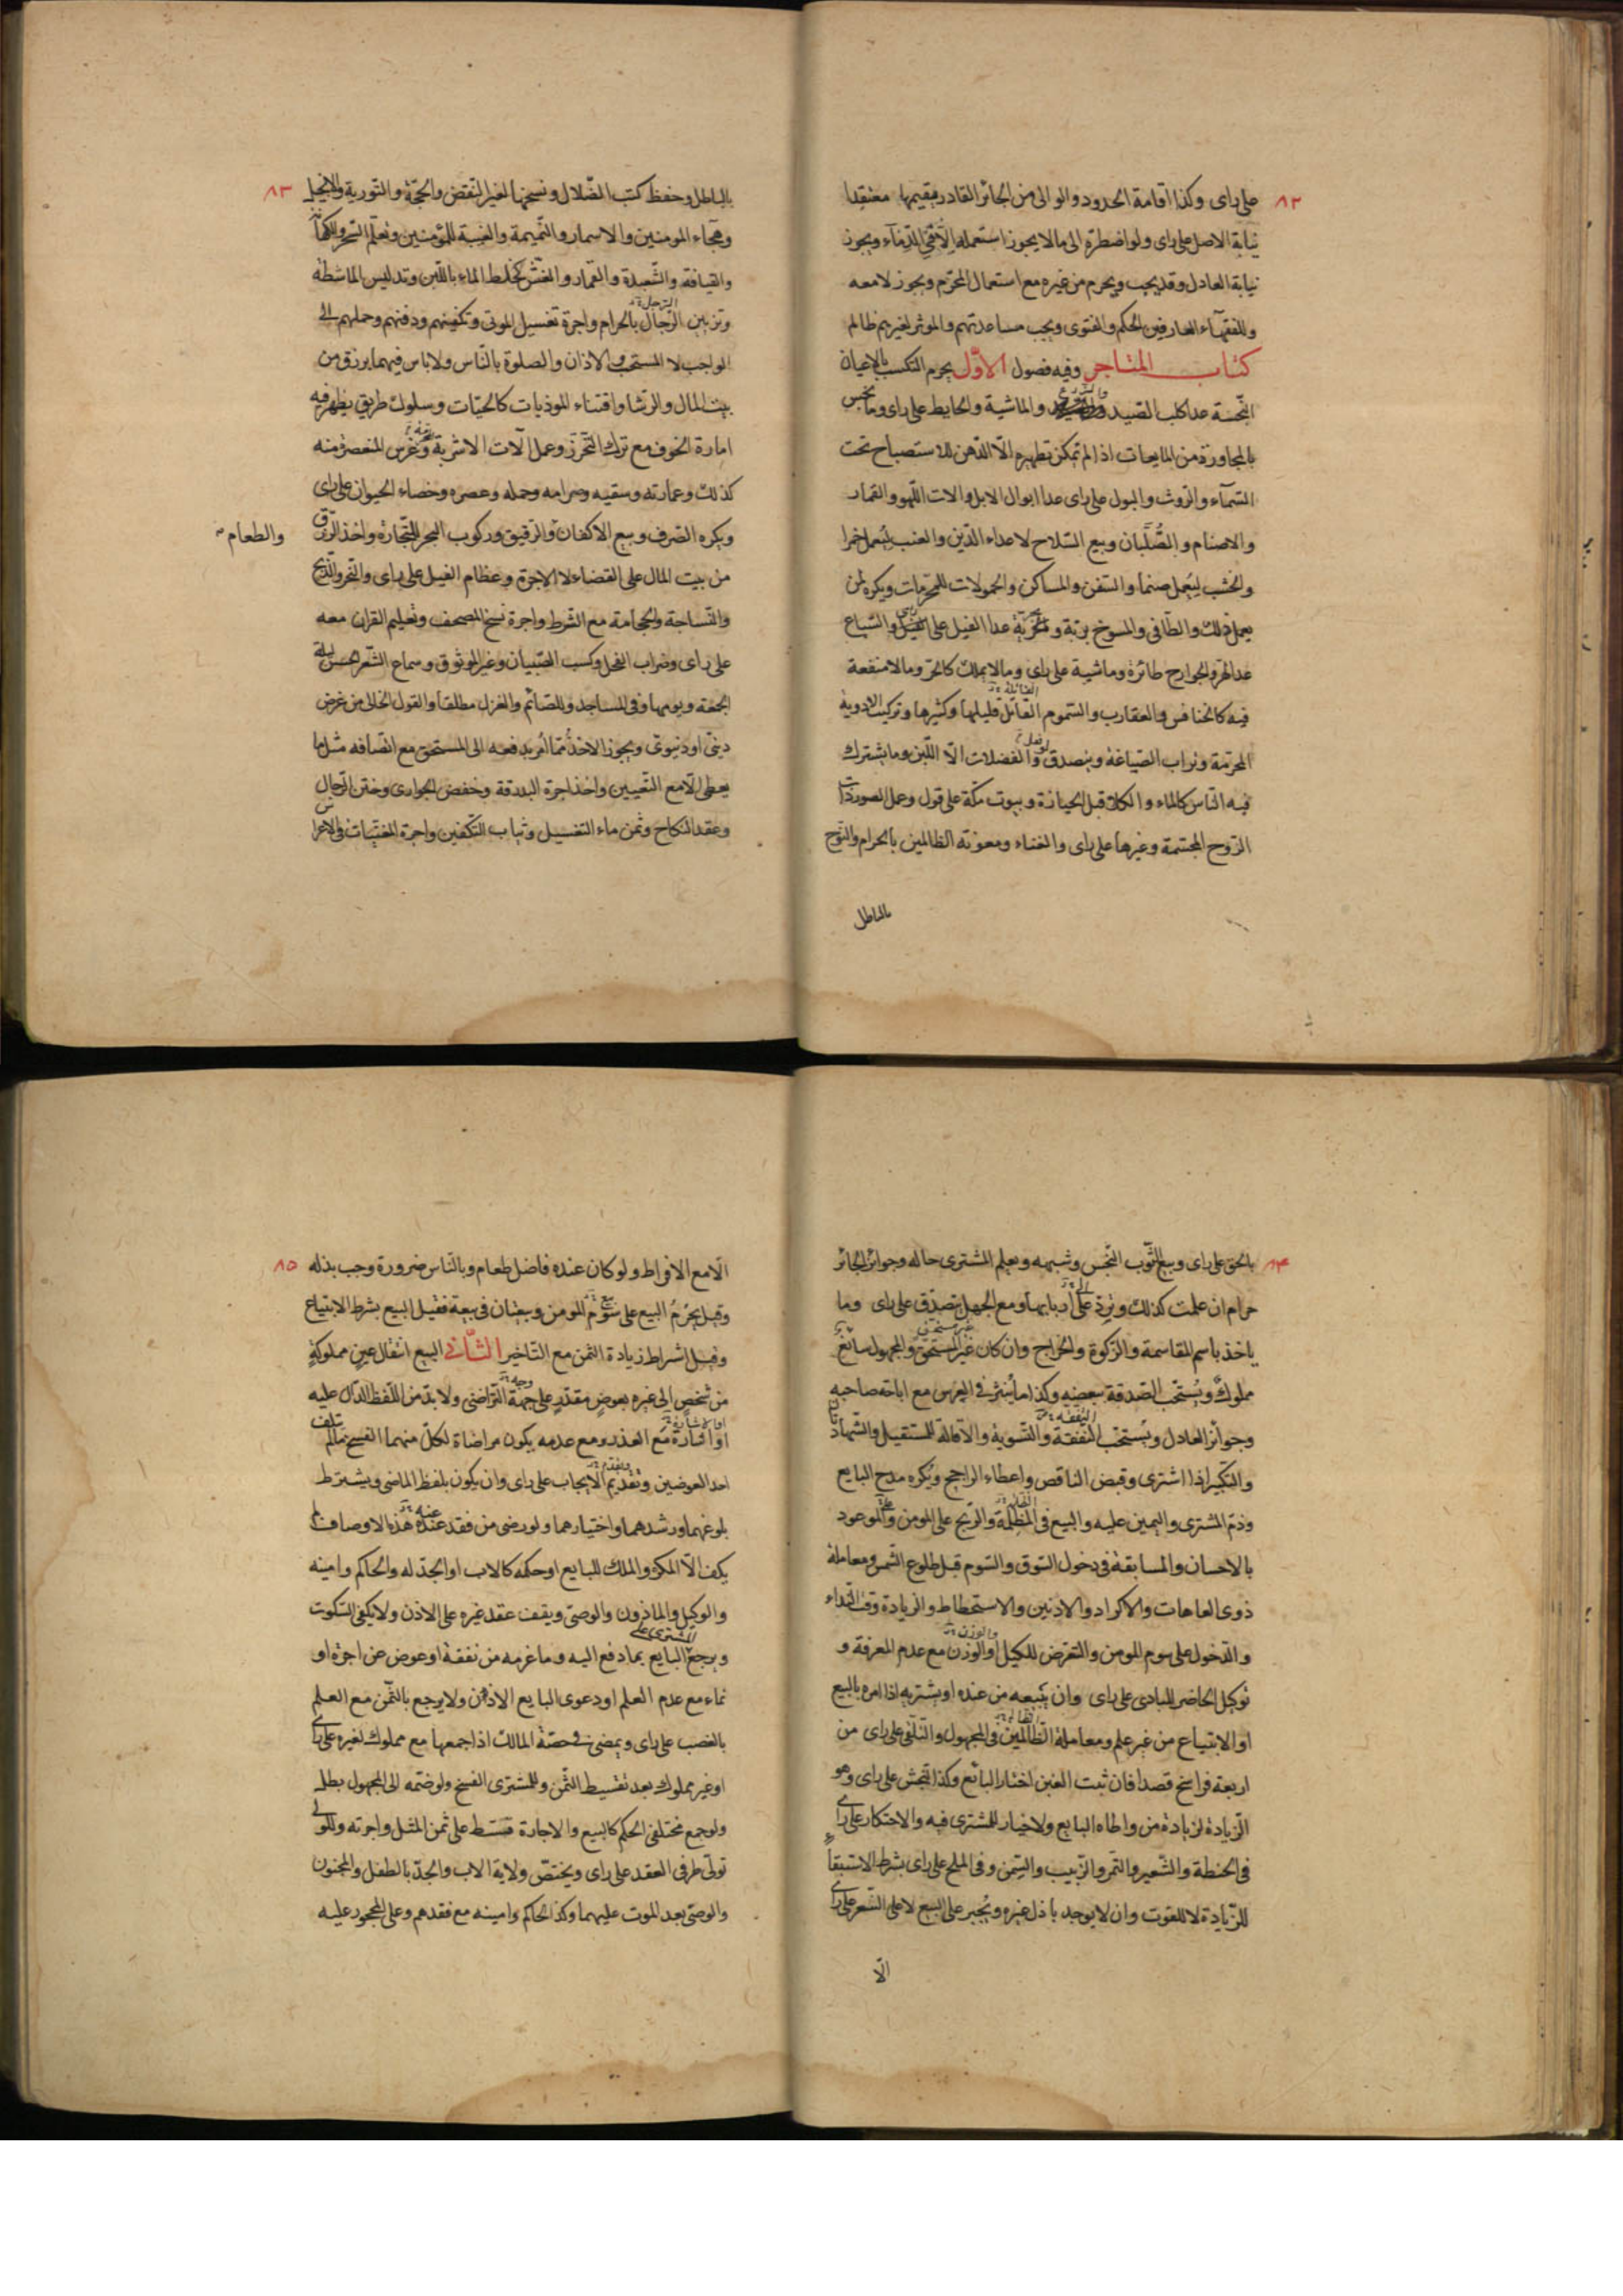 ٨٢
على راى وكذا اقامة الحدود والوالى من الجائر القادر مقيمها معتقدا
نيابة الاصل على راى ولو اضطره الى ما لا يجوز استعمله الا فى الدماء ويجوز
نيابة العادل وقد يجب ويحرم من غيره مع استعمال المحرم ويجوز لا معه
وللفقهاء العارفين الحكم والفتوى ويجب مساعدتهم والموثر لغيرهم ظالم
كتاب المتاجر وفيه فصول الاول يحرم التكسب بالاعيان
النجسة عدا كلب الصيد والزرع والماشية والحايط على راى وما نجس
بالمجاورة من المايعات اذا لم تمكن تطهيره الا الدهن للاستصباح تحت
السماء والروث والبول على راى عدا ابوال الابل والات اللهو والقمار
والاصنام والصلبان وبيع السلاح لاعداء الدين والعنب ليعمل خمرا
والخشب ليعمل صنما والسفن والمساكن والحمولات للمحرمات ويكره لمن
يعمل ذلك والطافى والمسوخ برية وبحرية عدا الفيل على راى والسباع
عدا الهر والجوارح طائرة وماشية على راى وما لا يملك كالحر وما لا منفعة
فيه كالخنافس والعقارب والسموم القاتل قليلها وكثيرها وتركيب الادوية
القاتلة
المحرمة وتراب الصياغة ويتصدق والفضلات الا اللبن وما يشترك
فيه الناس كالماء والكلاء قبل الحيازة وبيوت مكة على قول وعمل الصور ذات
الروح المجسمة وغيرها على راى والغناء ومعونة الظالمين بالحرام والنوح
بالباطل
٨٣
بالباطل وحفظ كتب الضلال ونسخها لغير النقض والحجة والتورية والانجيل
وهجاء المومنين والاسمار والنميمة والغيبة للمؤمنين وتعلم السحر والكهانة
والقيافة والشعبدة والقمار والغش كخلط الماء باللبن وتدليس الماشطة
وتزيين الرجال بالحرام واجرة تغسيل الموتى وتكفينهم ودفنهم وحملهم الى
الرجل
الواجب لا المستحب والاذان والصلوة بالناس ولا باس فيهما برزق من
بيت المال والرشا واقتناء الموذيات كالحيات وسلوك طريق يظهر فيه
امارة الخوف مع ترك التحرز وعمل آلات الاشربة وغرس المنعصرة منه
كذلك وعمارته وسقيه وصرامه وحمله وعصره وخصاء الحيوان على راى
ويكره الصرف وبيع الاكفان والرقيق وركوب البحر للتجارة واخذ الرزق
والطعام
من بيت المال على القضاء لا الاجرة وعظام الفيل على راى والنحر والذبح
والنساجة والحجامة مع الشرط واجرة نسخ المصحف وتعليم القران معه
على راى وضراب الفحل وكسب الصبيان وغير الموثوق وسماع الشعر الحسن ليلة
الجمعة ويومها وفى المساجد وللصائم والغزل مطلقا والقول الخالى من غرض
دينى او دنيوى ويجوز الاخذ مما امر بدفعه الى المستحق مع اتصافه مثل ما
يعطى الا مع التعيين واخذ اجرة البدرقة وخفض الجوارى وختن الرجال
وعقد النكاح وثمن ماء التغسيل وثياب التكفين واجرة المغنيات فى الاعراس
٨٤
بالحق على راى وبيع الثوب النجس وشبهه ويعلم المشترى حاله وجوائز الجائر
حرام ان علمت كذلك وترد على اربابها ومع الجهل يتصدق على راى وما
ياخذ باسم المقاسمة والزكوة والخراج وان كان غير المستحق والمجهول سائغ
مملوك ويستحب الصدقة ببعضه وكذا ما ينثر فى العرس مع اباحة صاحبه
وجوائز العادل ويستحب النفقة والتسوية والاقالة للمستقيل والشهادتان
التفقه
والتكبير اذا اشترى وقبض الناقص واعطاء الراجح ويكره مدح البايع
وذم المشترى واليمين عليه والبيع فى المظلمة والربح على المومن والموعود
بالاحسان والمسابقة فى دخول السوق والسوم قبل طلوع الشمس ومعاملة
ذوى العاهات والاكراد والادنين والاستحطاط والزيادة وقت النداء
والدخول على سوم المومن والتعرض للكيل او الوزن مع عدم المعرفة و
والوزن
توكيل الحاضر للبادى على راى وان يبيعه من عنده او يشتريه اذا امره بالبيع
او الابتياع من غير علم ومعاملة الظالمين فى المجهول والتلقى على راى من
اربعة فراسخ قصدا فان ثبت الغبن اختار البائع وكذا النجش على راى وهو
الزيادة لزيادة من واطاه البايع ولا خيار للمشترى فيه والاحتكار على راى
فى الحنطة والشعير والتمر والزبيب والسمن وفى الملح على راى بشرط الاستبقاء
للزيادة لا للقوت وان لا يوجد باذل غيره ويجبر على البيع لا على السعر على راى
الا
٨٥
الا مع الافراط ولو كان عنده فاضل طعام وبالناس ضرورة وجب بذله
وقيل يحرم البيع على سوم المومن وبيعتان فى بيعة فقيل البيع بشرط الابتياع
وقيل اشراط زيادة الثمن مع التاخير الثانى البيع انتقال عين مملوكة
من شخص الى غيره بعوض مقدر على جهة التراضى ولا بد من اللفظ الدال عليه
وجه
او اشارة مع العذر ومع عدمه يكون مراضاة لكل منهما الفسخ ما لم تلف
او الاشارة
احد العوضين وتقديم الايجاب على راى وان يكون بلفظ الماضى ويشترط
بلوغهما ورشدهما واختيارهما ولو رضى من فقد عنده هذه الاوصاف لم
يكف الا المكره والملك للبايع او حكمه كالاب او الجد له والحاكم وامينه
والوكيل والماذون والوصى ويقف عقد غيره على الاذن ولا يكفى السكوت
ويرجع البايع بما دفع اليه وما غرمه من نفقة او عوض عن اجرة او
المشترى على
نماء مع عدم العلم او دعوى البايع الاذن ولا يرجع بالثمن مع العلم
بالغصب على راى ويمضى فى حصة المالك اذا جمعها مع مملوك لغيره على راى
او غير مملوك بعد تقسيط الثمن وللمشترى الفسخ ولو ضمه الى المجهول بطل
ولو جمع مختلفى الحكم كالبيع والاجارة قسط على ثمن المثل واجرته وللولى
تولى طرفى العقد على راى ويختص ولاية الاب والجد بالطفل والمجنون
والوصى بعد الموت عليهما وكذا الحاكم وامينه مع فقدهم وعلى المحجور عليه